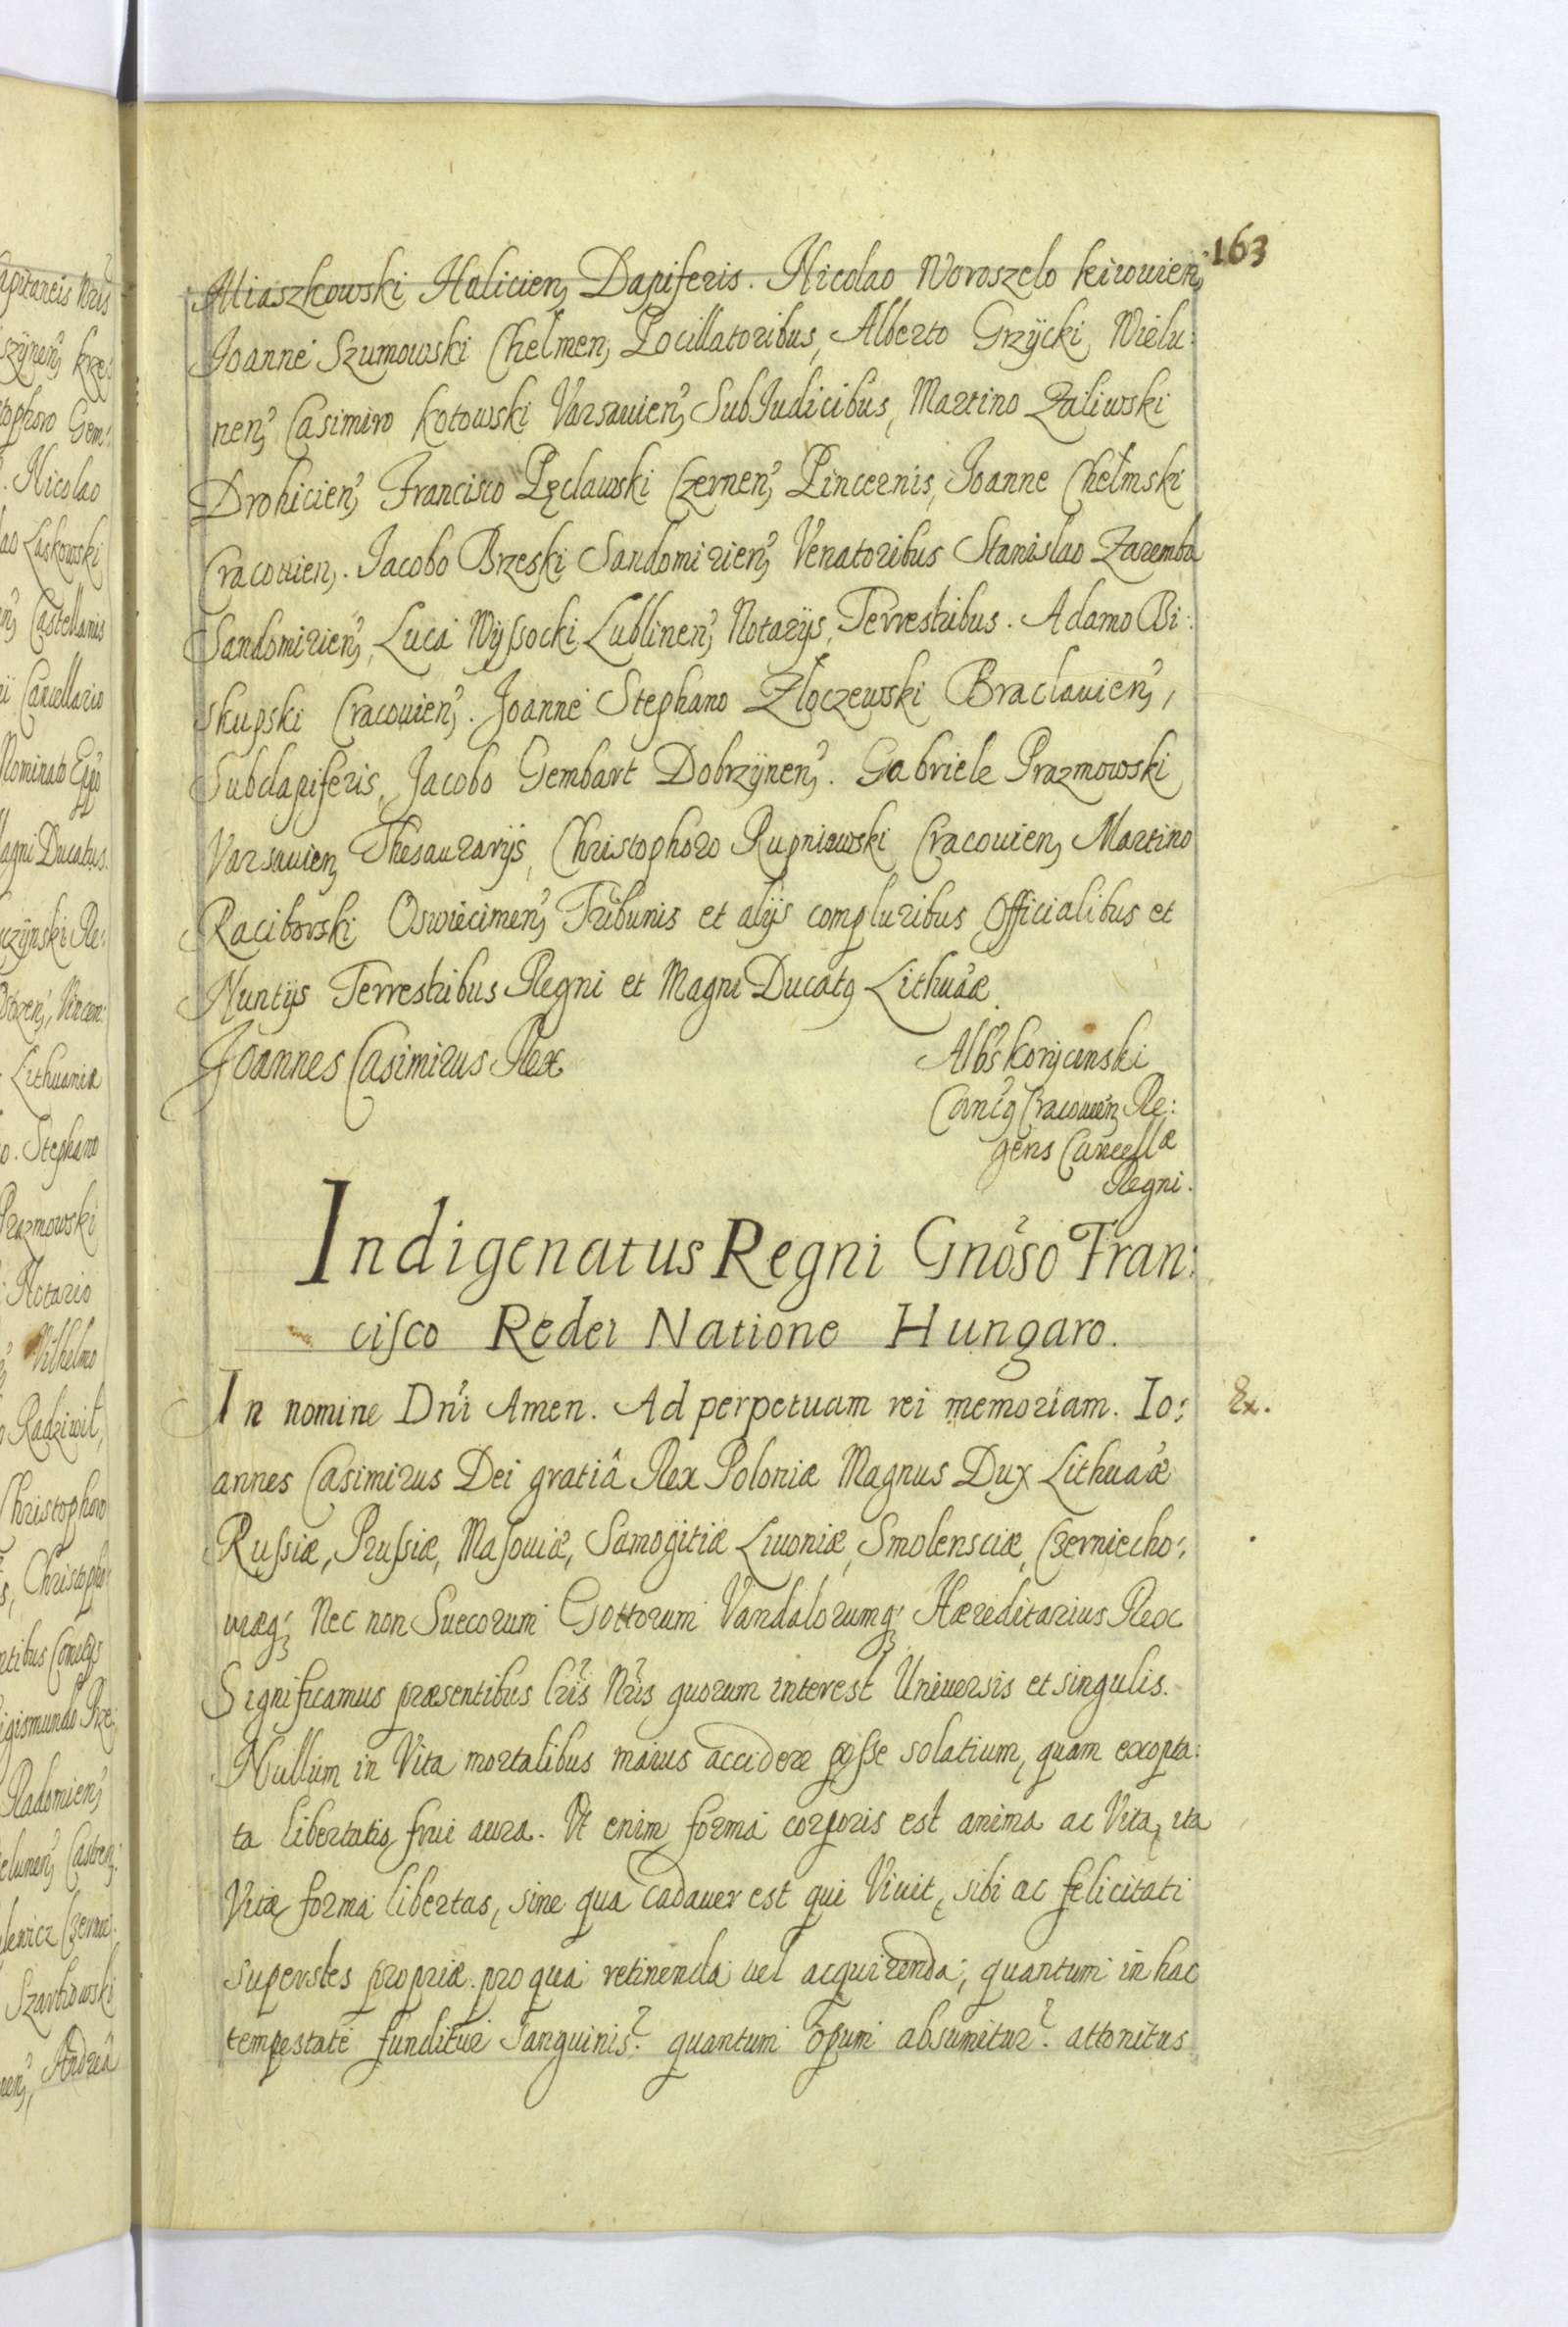 163
Miaszkowski Halicien, Dapiferis. Nicolao Woroszelo kiiouien,
Joanne Szumowski Chełmen, Pocillatoribus, Alberto Grzÿcki Wielu:
nen, Casimiro kotowski Varsauien, SubJudicibus, Martino Zaliwski
Drohicien, Francisco Pęclawski Czernen, Pincernis, Joanne Chełmski
Cracouien. Jacobo Brzeski Sandomirien, Venatoribus Stanislao Zaremba
Sandomirien, Luca Wÿssocki Lublinen, Notarÿs, Terrestribus. Adamo Bi:
skupski Cracouien. Joanne Stephano Złoczewski Braclauien,
Subdapiferis, Jacobo Gembart Dobrzÿnen. Gabriele Prazmowski
Varsauien, Thesaurarÿs, Christophoro Rupniewski Cracouien, Martino
Raciborski Oswiecimen, Tribunis et alÿs compluribus Officialibus et
Nuntÿs Terrestribus Regni et Magni Ducatq Lithuãæ.
Joannes Casimirus Rex
Albs korÿcinski
Cancq Cracouien, Re:
gens Cancellæ
Regni.
Indigenatus Regni Gnoso Fran:
cisco Redei Natione Hungaro.
In nomine Dni Amen. Ad perpetuam rei memoriam. Io:
Ex.
annes Casimirus Dei gratiâ Rex Poloniæ Magnus Dux Lithuaæ
Russiæ, Prussiæ, Masouiæ, Samogitiæ Liuoniæ, Smolensciæ, Czerniecho:
uiæq; Nec non Suecorum Gottorum Vandalorumq; Hæreditarius Rex
Significamus præsentibus lris Nris quorum interest Uniuersis et singulis.
Nullum in Vita mortalibus maius accidere posse solatium, quam exopta:
ta libertatis frui aura. Vt enim forma corporis est anima ac Vita, ita
Vitæ forma libertas, sine qua cadauer est qui Viuit, sibi ac felicitati
superstes propriæ. pro qua retinenda uel acquirenda, quantum in hac
tempestate funditur Sanguinis? quantum opum absumitur? attonitus